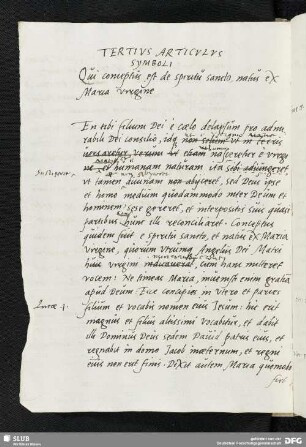 TERTIVS ARTICVLVS
SYMBOLI
Qui conceptus est de spiritu sancto, natus ex
Maria virgine
En tibi filium Dei e cælo delapsum pro admi-
rabili Dei consilio, idq non solum ut in terris
versaretur, verum ut etiam nasceretur e virgi
ne et humanam naturam ita sibi adiungeret
ut tamen divinam non abijceret, sed Deus ipse
et homo medium quodammodo inter Deum et
hominem sese gereret, et interpositis suis quasi
partibus hunc illi reconciliaret. Conceptus
quidem fuit e spiritu sancto, et natus ex Maria
Virgine, quorum utrumq Angelus Dei Matri
virgini indicaverat, cum hanc mitteret
vocem: Ne timeas Maria, invenisti enim gratia
apud Deum. Ecce concipies in utero et paries
Lucæ 1. filium et vocabis nomen eius Iesum: hic erit
magnus et filius altissimi vocabitur, et dabit
illi Dominus Deus sedem David patris eius, et
regnabit in domo Jacob in æternum, et regni
eius non erit finis. Dixit autem Maria quomodo
fiet
SLUB
DFG